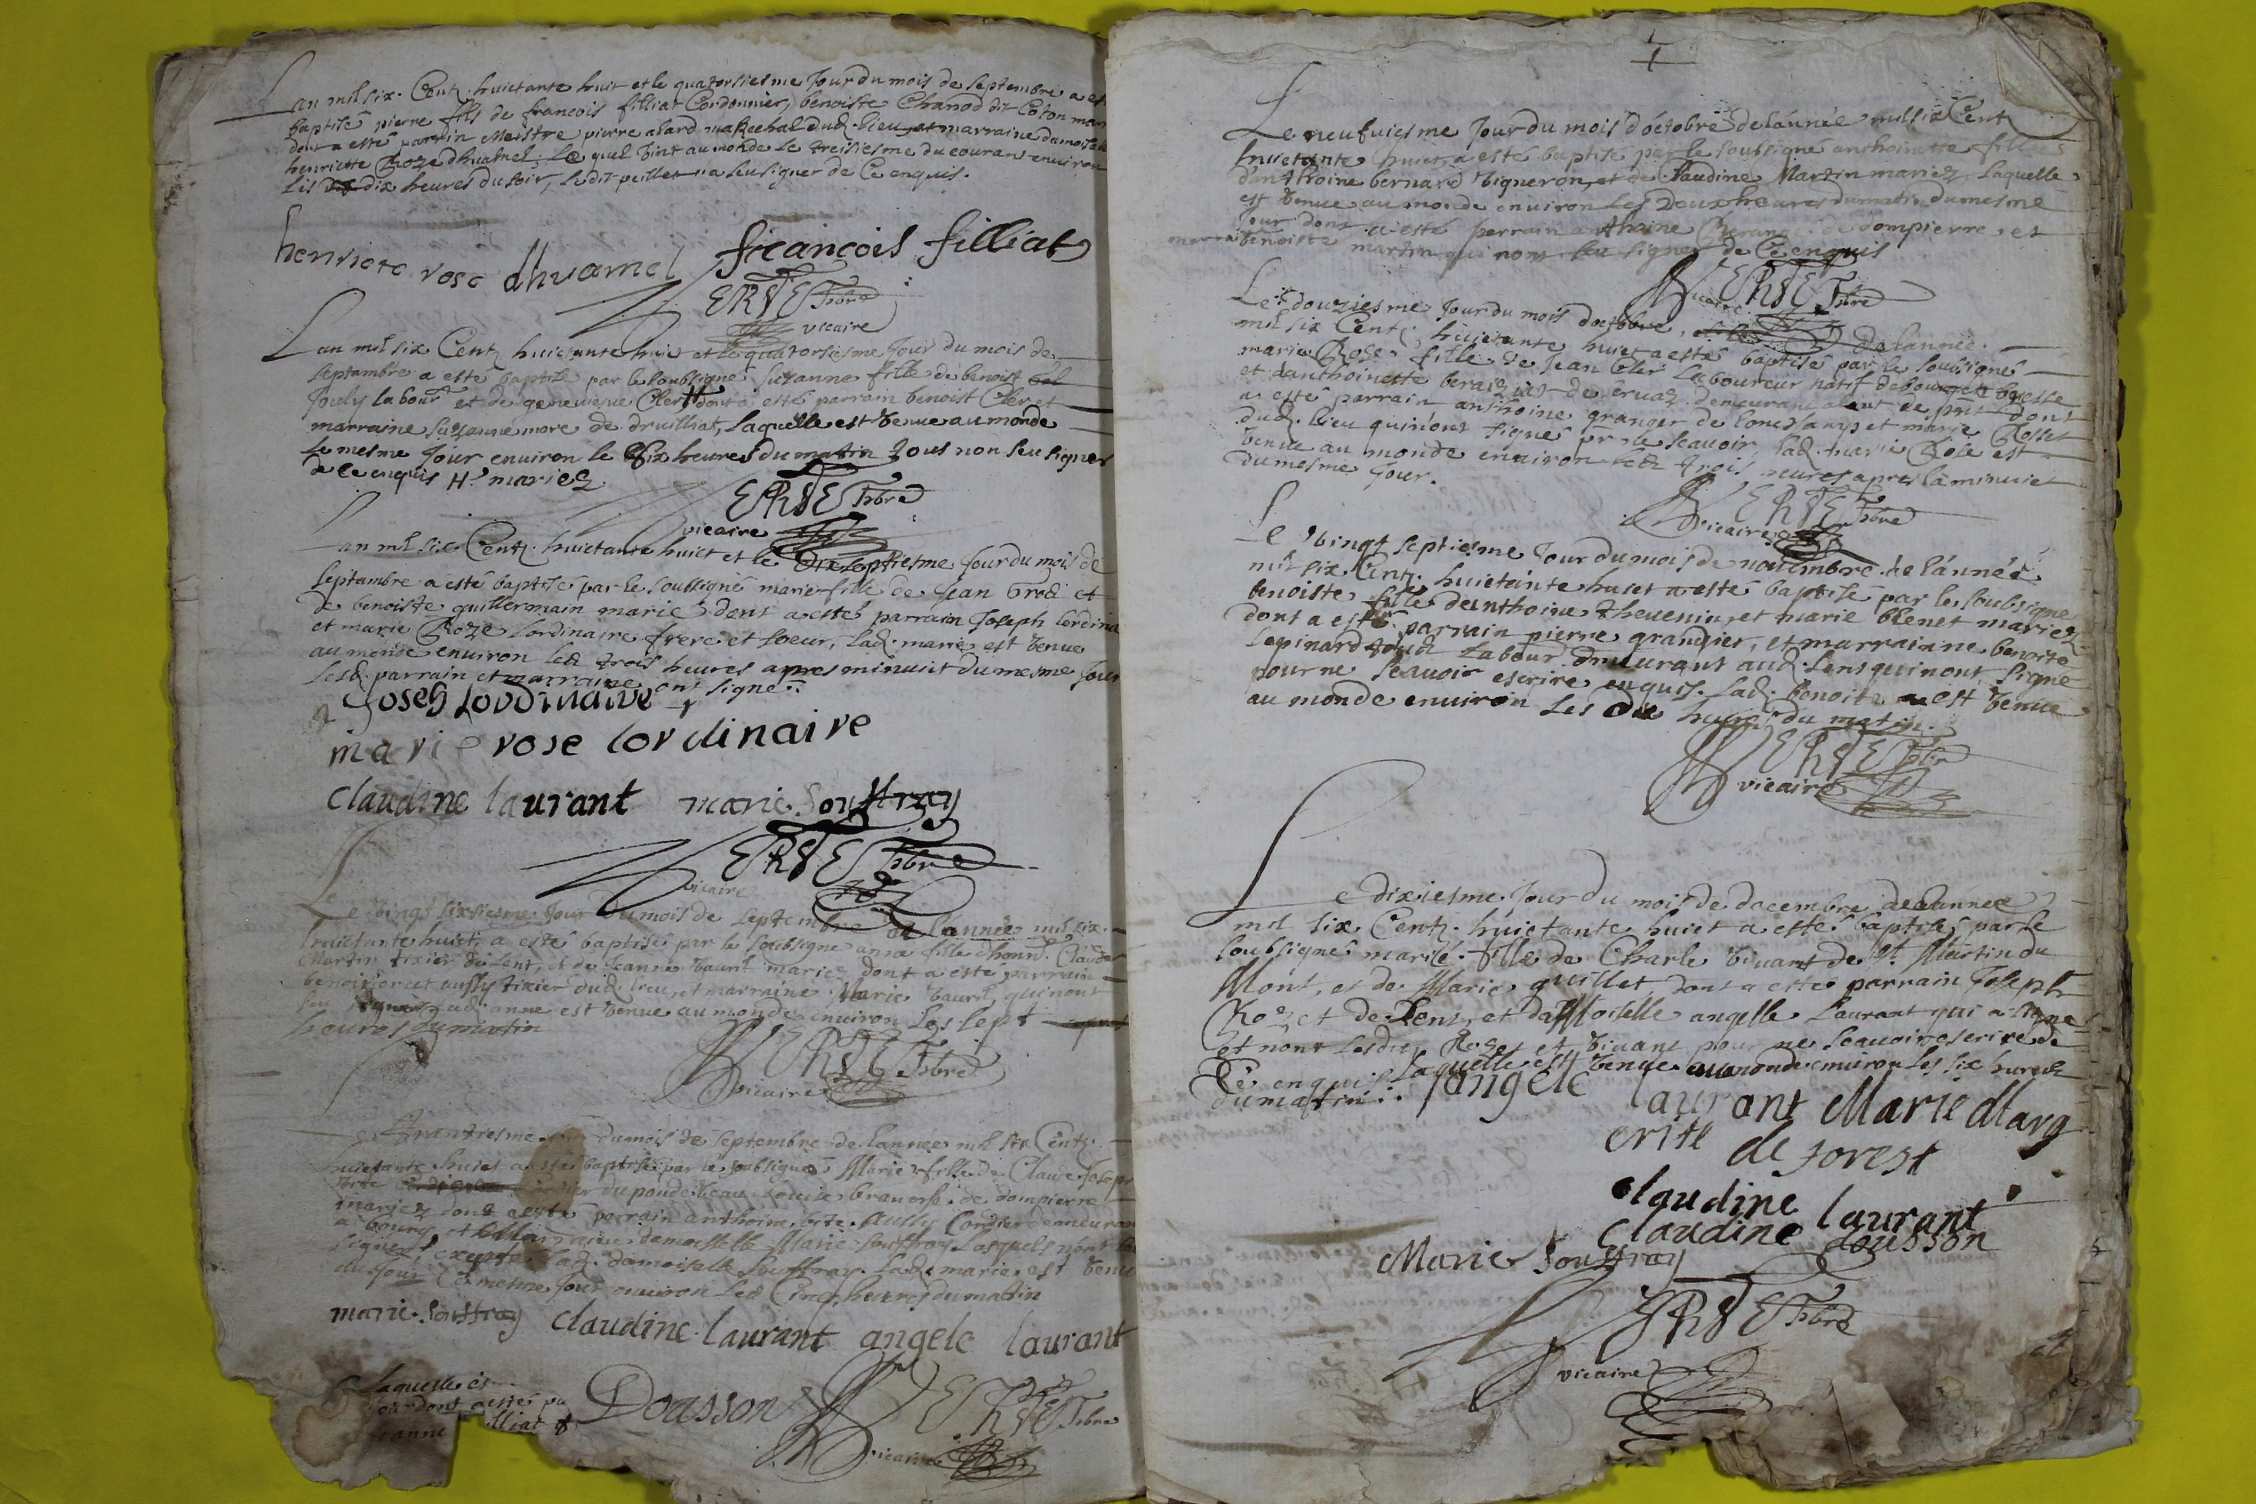 Lan mil six Centz huictante huit et le quatorsiesme Jour du mois de septembre a es
baptisé pierre fils de francois filliat Cordonnier, benoiste Chanod dit Coton mar
dont a esté parrain Meistre pierre alard marechal dud. lieu et marraine damoiselle
henriette Roze dhuamel Le quel vint au monde le treisiesme du courant environ
les dix heures du soir, le dit peillet n'a seu signer de Ce enquis.
henriete rose dhuamel francois filliat
ERVE Pbre
vicaire
Lan mil six Centz huictante huit et le quatorsiesme Jour du mois de
septambre a esté baptisé par le soubsigné Suzanne fille de benoist
Joly labour et de genevieve Clert H dont a esté parrain benoist Cler et
marraine Suzanne more de druilliat, laquelle est venue au monde
le mesme Jour environ le six heures du matin tous non seu signer
de Ce enquis H. mariez
ERVE Pbre
vicaire
Lan mil six Centz huictante huict et le dixseptiesme Jour du mois de
septambre a esté baptisé par le soussigné marie fille de Jean brod et
de benoiste guillermain marié dont a esté parrain Joseph lordina
et marie Roze Lordinaire frere et soeur, Lad. marie est venue
au monde environ les trois heures apres minuit du mesme Jour
Lesd. parrain et marraine ont signé
Joseh Lordinaire
marie rose lordinaire
claudine laurant marie Souffray
ERVE Pbre
vicaire
Le vingt sixsiesme Jour du mois de septembre de l'année mil six
huictante huict, a esté baptisé par le soubsigné anne fille dhonn. Claude
Martin tixier de Lent, et de Jeanne vaurit mariez dont a esté parrain
benoist et aussy tixier dud. lieu, et marraine Marie vaurit, qui nont
seu signer Lad. anne est venue au monde environ Les sept
heures du matin
ERVE Pbre
vicaire
trantiesme du mois de septembre de lannée mil six Centz
huictante huict a esté baptisé par le soubsigné Marie fille de Claude Joseph
du pondeveau Louise de dompierre
mariez dont a esté parrain anthoine aussy Cordier demeurant
a bourg, et marraine demoiselle Marie Souffray Lesquels n'ont
signé excepté Lad. damoiselle Souffray. Lad. marie est venue
du Jour Ce mesme Jour environ Les Cinq heures du matin
marie Souffray claudine laurant angele laurant
Laquelle
Jour dont a esté pa
lliat &
Jeanne
Dousson
ERVE Pbre
vicaire
Le neufviesme Jour du mois d'octobre de l'année mil six Centz
huictante huict, a esté baptisé par le soussigné anthoinette fille
d'anthoine bernard vigneron, et de Claudine Martin mariez Laquelle
est venue au monde environ les deux heures du matin du mesme
Jour dont a esté parrain anthoine de dompierre et
marraine benoiste martin qui nont seu signer de Ce enquis
ERVE Pbre
vicaire
Le douziesme Jour du mois doctobre de lannée
mil six Centz huictante huict a esté baptisé par le soussigné
marie Rose fille de Jean Cler Laboureur natif de bourg en bresse
et danthoinette demeurant a Lent de pnt dont
a esté parrain anthoine granger de Lonchamp et marie Rosset
dud. lieu qui n'ont signé pr ne scavoir, lad. marie Rose est
venue au monde environ les trois heures apres la minuict
du mesme Jour.
ERVE Pbre
vicaire
Le vingt septiesme Jour du mois de novembre de l'année
mil six Centz huictante huict a esté baptisé par le soubsigné
benoiste fille danthoine thevenin, et marie blenet mariez
dont a esté parrain pierre grandjer, et marrainne benoite
Lepinard Labour. demeurant aud. Lent qui nont signé
pour ne scavoir escrire enquis. Lad. benoite est venue
au monde environ Les dix heures du matin.
ERVE Pbre
vicaire
Le dixiesme Jour du mois de decembre de lannée
mil six Centz huictante huict a esté baptisé par le
soubsigné marie fille de Charle vivant de St Martin du
Mont, et de Marie guillet dont a esté parrain Joseph
Roz, et de Lent, et daMoiselle angelle Laurant qui a signé
et nont Lesdits Roz et vivant pour ne scavoir escrire de
Ce enquis. Laquelle est venue au monde environ les six heures
du matin. angele laurant Marie Marg
erite de forest
claudine laurant
claudine dousson
Marie Souffray
ERVE Pbre
vicaire